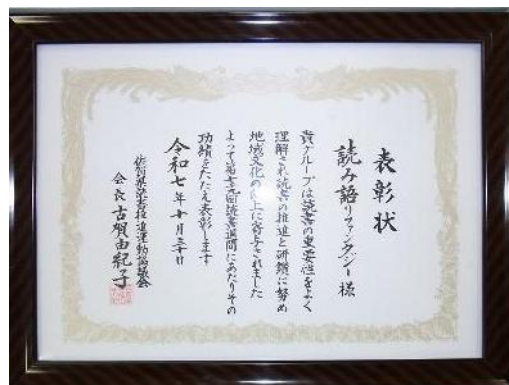 表彰状
読み語りファンタジー様
貴グループは読書の重要性をよく
理解され読書の推進と研鑽に努め
地域文化の向上に寄与されました
よって第七十九回読書週間にあたりその
功績をたたえ表彰します
令和七年十月三十日
佐賀県読書推進運動協議会
会長古賀由紀子